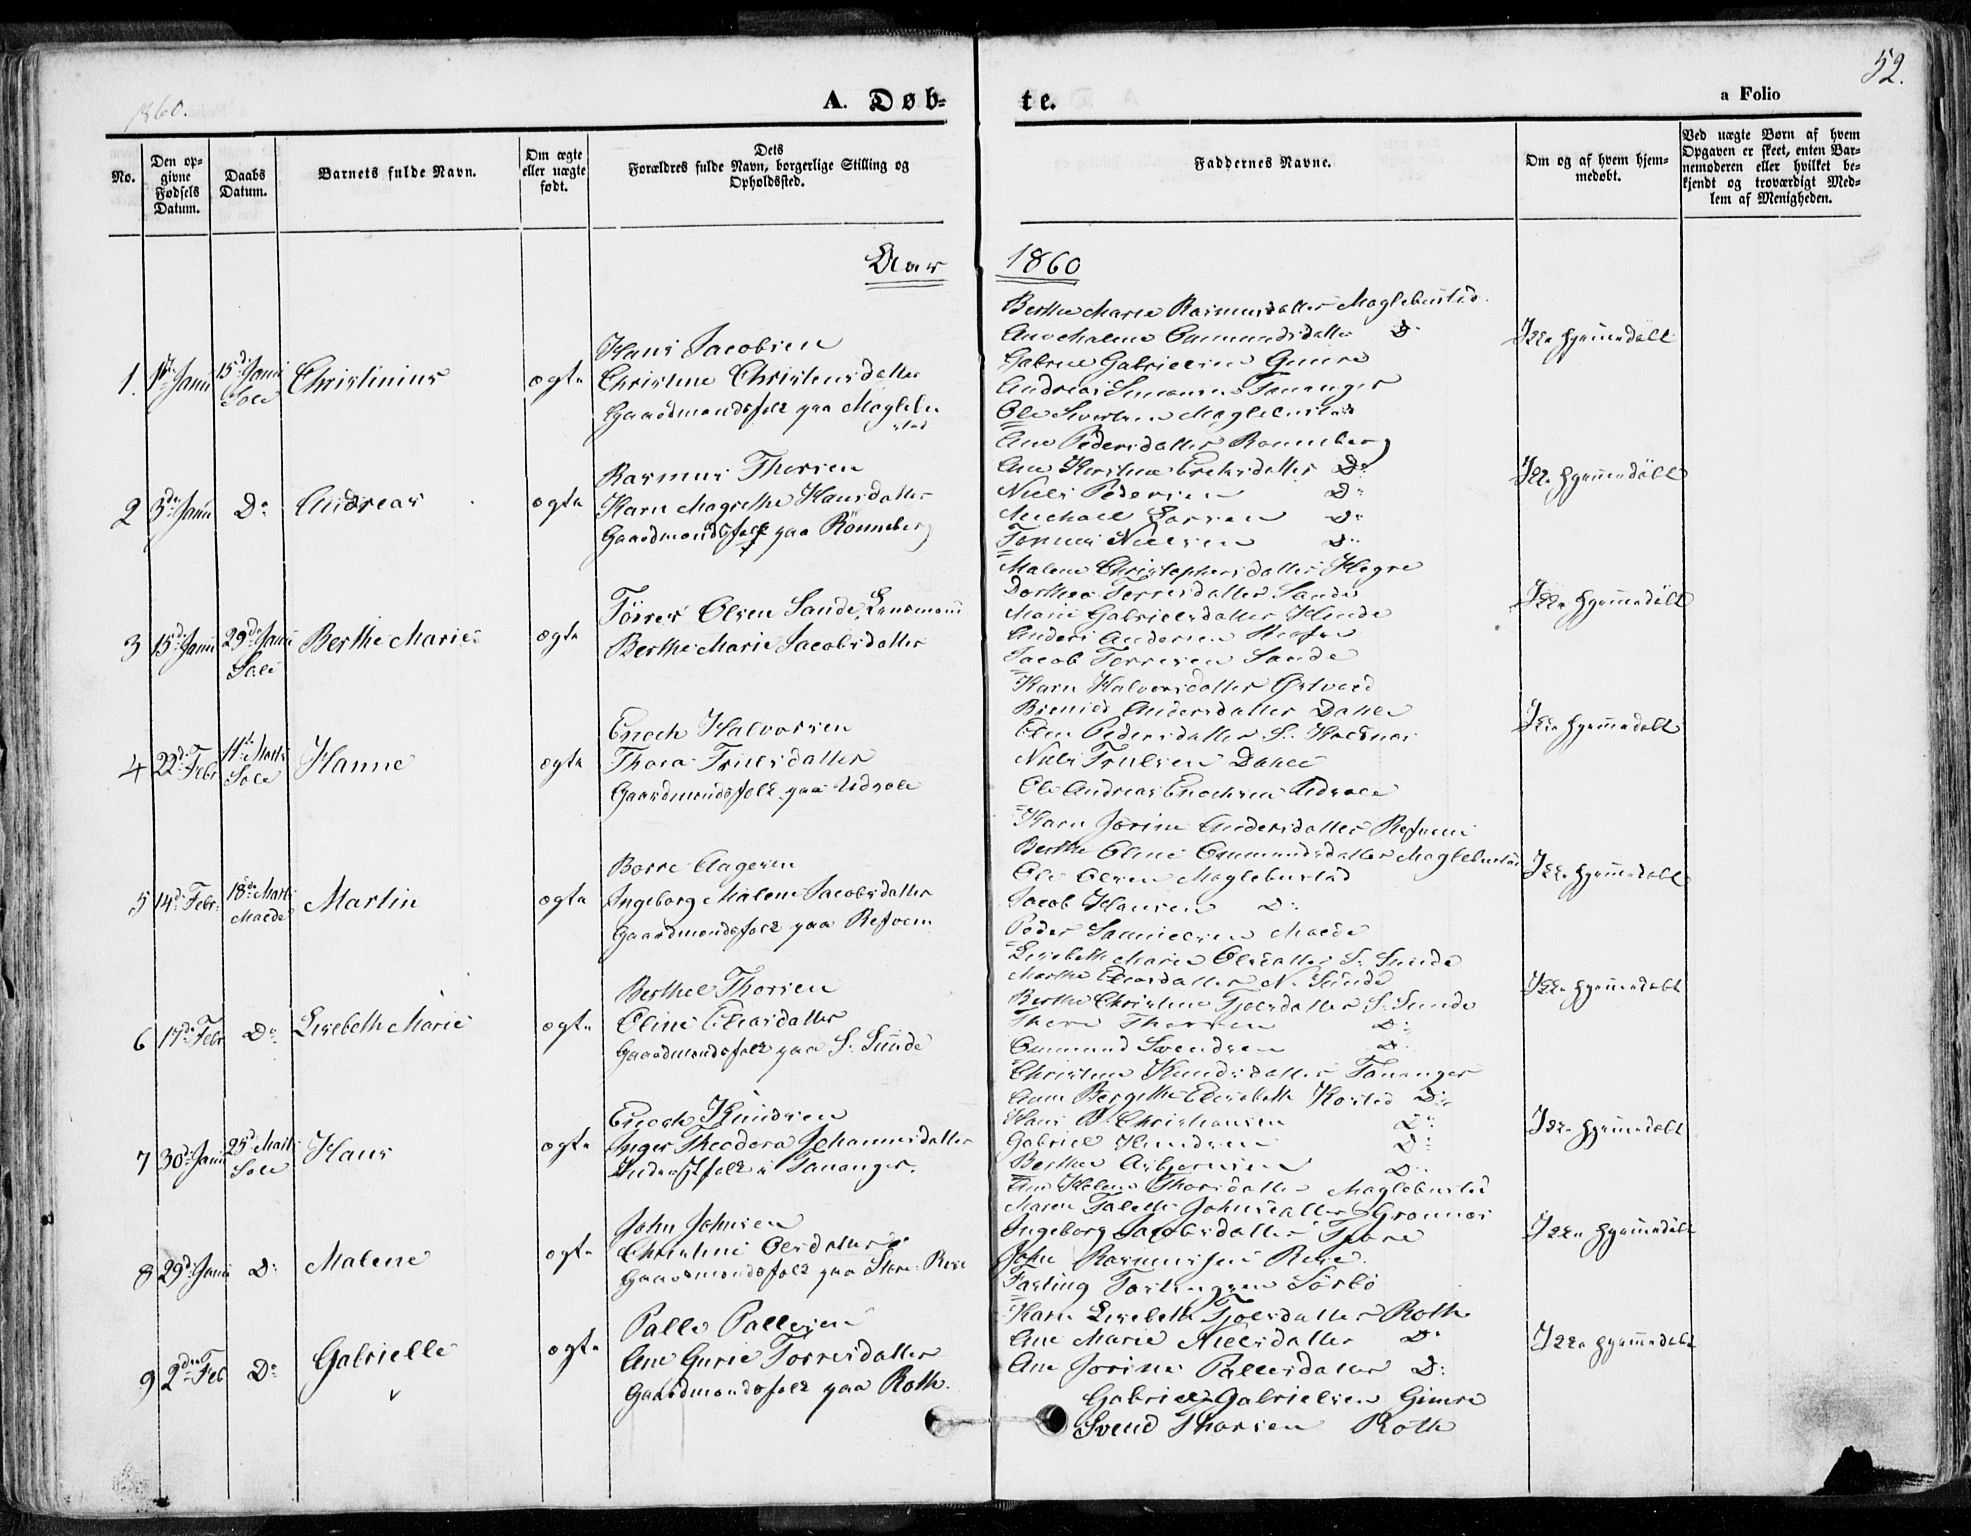 52.
1860.
A. Døb-
te.
a Folio
No.
Den op-
givne
Fødsels
Datum.
Daabs
Datum.
Barnets fulde Navn.
Om ægte
eller uægte
født.
Dets
Forældres fulde Navn, borgerlige Stilling og
Opholdssted.
Faddernes Navne.
Om og af hvem hjem-
medøbt.
Ved uægte Børn af hvem
Opgaven er skeet, enten Bar-
nemoderen eller hvilket be-
kjendt og troværdigt Med-
lem af Menigheden.
Aar
1860
1.
1ste Janu
15de Janu
Sole
Christinius
ægte
Hans Jacobsen
Christine Christensdatter
Gaardmandsfolk paa Maglebu
stad
Berthe Marie Rasmusdatter Maglebustad
Ane Malene Ommundsdatter Do
Gabriel Gabrielsen Gimre
Andreas Simonsen Tananger
Ole Sivertsen Maglebustad
Ikke hjemmedøbt
2
3de Janu
Do
Andreas
ægte
Rasmus Thorsen
Karn Magrethe Hansdatter
Gaardmandsfolk paa Rönneberg
Ane Pedersdatter Ronneberg
Ane Kirstine Eriksdatter Do
Niels Pedersen Do
Michael Larsen Do
Tonnes Nielsen Do
Ikke hjemmedöbt
3
15de Janu
29de Janu
Sole
Berthe Marie
ægte
Törres Olsen Sande, Lensmand
Berthe Marie Jacobsdatter
Malene Christophersdatter Hegre
Dorthea Torresdatter Sande
Marie Gabrielsdatter
Anders Andersen
Jacob Torresen Sande
Ikke hjemmedöbt
4
22de Febr
11te Marts
Sole
Hanne
ægte
Enoch Halvorsen
Thora Trulsdatter
Gaardmandsfolk paa Udsole
Karn Halvorsdatter
Andersdatter
Elen Pedersdatter S.
Niels Trulsen
Ole Andreas Enochsen Udsole
Ikke hjemmedøbt
5
14de Febr.
18de Marts
Malde
Martin
ægte
Borre Aagesen
Ingeborg Malene Jacobsdatter
Gaardmandsfolk paa Refvem
Karn Jorine Andersdatter Refvem
Berthe Oline Ommundsdatter Maglebustad
Ole Olsen Maglebustad
Jacob Hansen Do
Peder Samuelsen Malde
Ikke hjemmedøbt
6
17de Febr
Do
Lisebeth Marie
ægte
Berthel Thorsen
Oline Eliasdatter
Gaardmandsfolk paa S. Sünde
Lisebeth Marie Olsdatter S. Sunde
Marthe Eliasdatter N. Sunde
Berthe Christine Tjølsdatter S. Sunde
Thore Thorsen Do
Ommund Svendsen Do
Ikke hjemmedøbt
7
30de Janu
25de Marts
Sole
Hans
ægte
Enoch Knudsen
Inger Theodora Johannesdatter
Inderstfolk i Tananger.
Christine Knudsdatter Tananger
Anne Bergethe Elisebeth Do
Hans Christiansen Do
Gabriel Knudsen Do
Berthe Asbjornsen Do
Ikke hjemmedøbt
8
29de Janu
Do
Malene
ægte
John Johnsen
Christine Olsdatter
Gaardmandsfolk paa Store Rege
Ane Helene Thorsdatter Maglebustad
Maren Talette Johnsdatter Gronnes
Ingeborg Jacobsdatter Tjore
John Rasmussen Rege
Tarling Tarlingsen Sörbö
Ikke hjemmedøbt
9
2den Feb
Do
Gabrielle
v
ægte
Palle Pallesen
Ane Gurie Torresdatter
Gaardmandsfolk paa Roth.
Karn Lisebeth Tjølsdatter Roth
Ane Marie Nilsdatter Do
Ane Jorine Pallesdatter Do
Gabriel Gabrielsen Gimre
Svend Thorsen Roth
Ikke hjemmedøbt